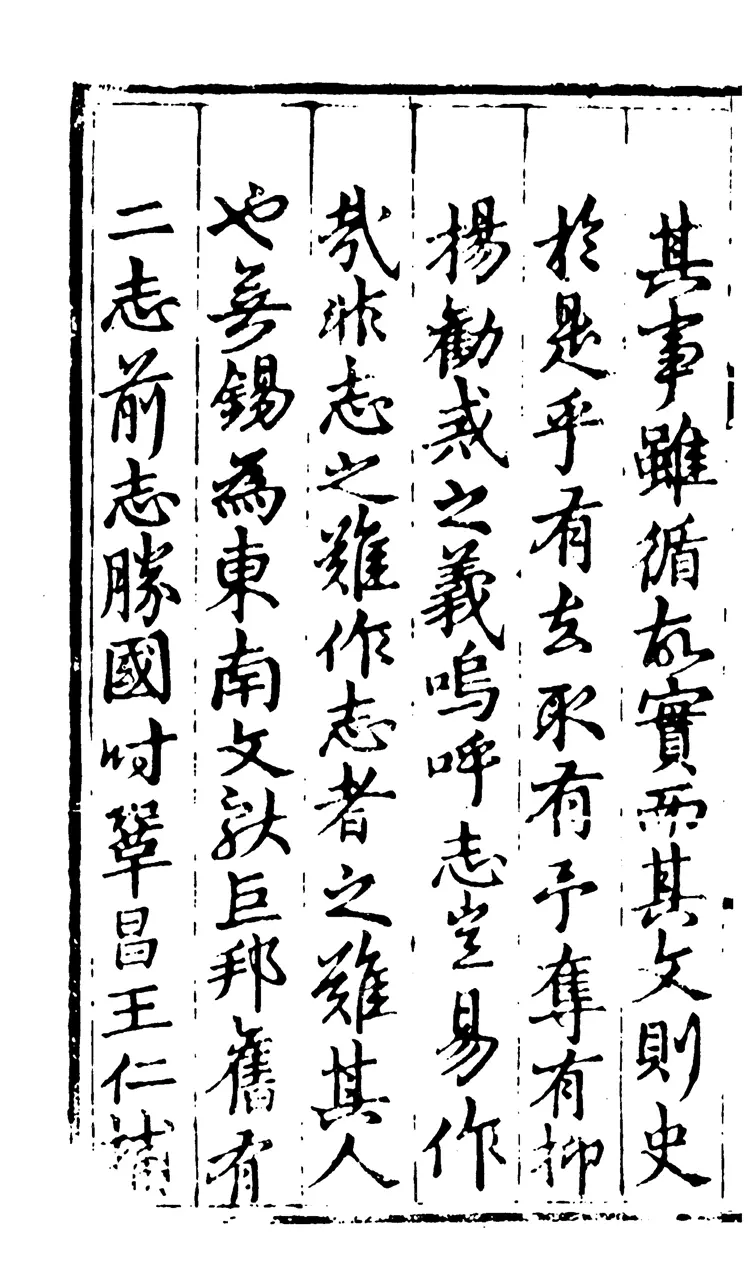 其事雖循故實而其文則史
於是乎有去取有予奪有抑
揚勸戒之義嗚呼志豈易作
哉非志之難作志者之難其人
也無錫為東南文獻巨邦舊有
二志前志勝國時鞏昌王仁輔